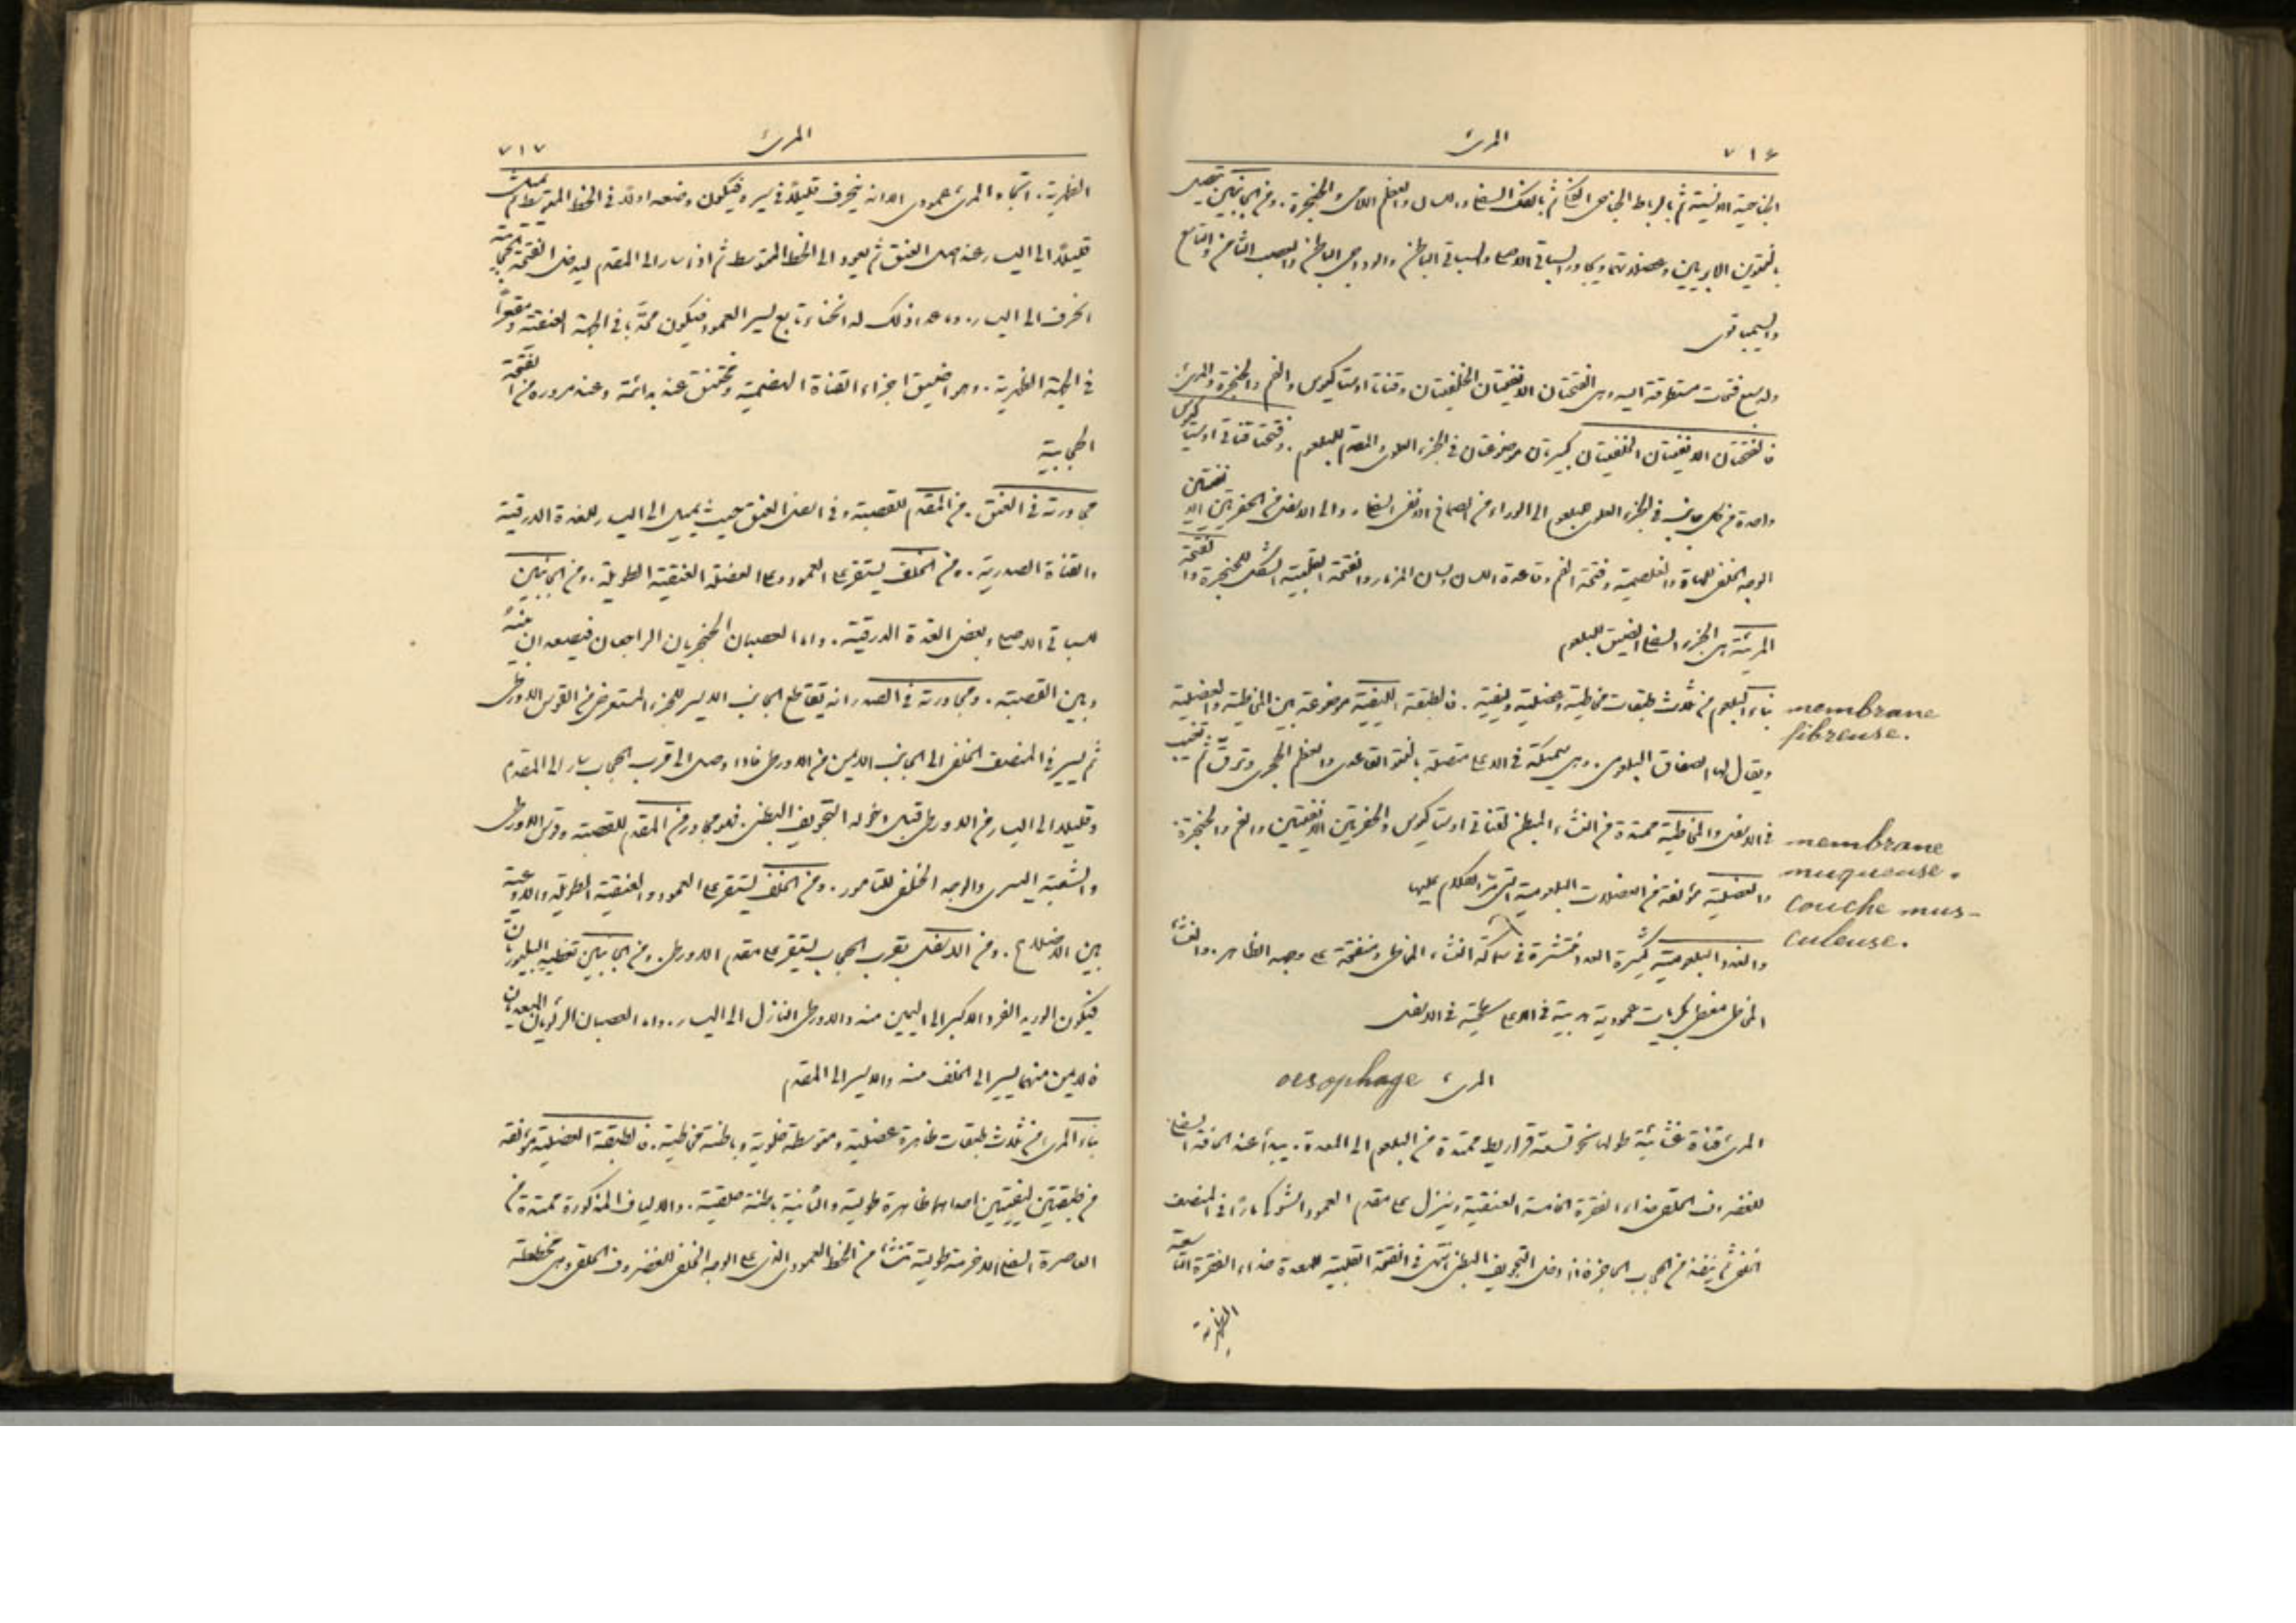 ٧١٦ المرئ
الجناحية الانسية ثم بالرباط الجناحى الفكى ثم بالفك السفلى واللسان والعظم اللامى والحنجرة . ومن الجانبين يتصل
بالنتوين الابريين وعضلاتهما ويجاور السباتى الاصلى والسباتى الباطن والوداجى الباطن والعصب الثامن والتاسع
والسيمباثوى
وله سبع فتحات مستطرقة اليه وهى الفتحتان الانفيتان الخلفيتان وقناتا اوستاكيوس والفم والحنجرة والمرئ .
فالفتحتان الانفيتان الخلفيتان كبيرتان موضوعتان فى الجزء العلوى المقدم للبلعوم . وفتحتا قناتى اوستاكيوس
واحدة من كل جانب فى الجزء العلوى للبلعوم الى الوراء من الصماخ الانفى السفلى والى الاسفل من الحفرتين الانفيتين
الوجه الخلفى للهاة والغلصمية وفتحة الفم وقاعدة اللسان ولسان المزمار والفتحة القلبية الشكل للحنجرة والفتحة
المريئية هى الجزء السفلى الضيق للبلعوم
بناء البلعوم من ثلاث طبقات مخاطية وعضلية وليفية . فالطبقة الليفية موضوعة بين المخاطية والعضلية
membrane
fibreuse.
ويقال لها الصفاق البلعومى . وهى سميكة فى الاعلى متصلة بالنتو القاعدى والعظم الحجرى وترق ثم تغيب
فى الاسفل والمخاطية ممتدة من الغشاء المبطن لقناتى اوستاكيوس والحفرتين الانفيتين والفم والحنجرة
membrane
muqueuse.
والعضلية مؤلفة من العضلات البلعومية التى مر الكلام عليها
couche mus-
culeuse.
والغدد البلعومية كثيرة العدد منتشرة فى سماكة الغشاء المخاطى ومنفتحة على وجهه الظاهر . والغشاء
المخاطى مغطى بكريات عمودية هدبية فى الاعلى سطحية فى الاسفل
المرئ oesophage
المرئ قناة غشائية طولها نحو تسعة قراريط ممتدة من البلعوم الى المعدة . يبدأ عند الحافة السفلى
للغضروف الحلقى حذاء الفقرة الخامسة العنقية وينزل على مقدم العمود الشوكى مارًا فى المنصف
الخلفى ثم ينفذ من الحجاب الحاجز فاذا دخل التجويف البطنى انتهى فى الفتحة القلبية للمعدة حذاء الفقرة التاسعة
الظهرية
المرئ ٧١٧
الظهرية . اتجاه المرئ عمودى الا انه ينحرف قليلاً فى سيره فيكون وضعه اولاً فى الخط المتوسط ثم يميل
قليلاً الى اليسار عند اصل العنق ثم يعود الى الخط المتوسط ثم اذا سار الى المقدم ليدخل الفتحة الحجابية
انحرف الى اليسار . وما عدا ذلك له انحناء تابع لسير العمود فيكون محدبًا فى الجهة العنقية ومقعرًا
فى الجهة الظهرية . وهو اضيق اجزاء القناة الهضمية ومختنق عند بدائته وعند مروره من الفتحة
الحجابية
مجاورته فى العنق . من المقدم للقصبة وفى اسفل العنق حيث يميل الى اليسار للغدة الدرقية
والقناة الصدرية . ومن الخلف يستقر على العمود وعلى العضلة العنقية الطويلة . ومن الجانبين
للسباتى الاصلى وبعض الغدة الدرقية . واما العصبان الحنجريان الراجعان فيصعدان بينه
وبين القصبة . ومجاورته فى الصدر انه يتقاطع الجانب الايسر للجزء المستعرض من القوس الاورطى
ثم يسير فى المنصف الخلفى الى الجانب الايمن من الاورطى فاذا وصل الى قرب الحجاب سار الى المقدم
وقليلاً الى اليسار من الاورطى قبل دخوله التجويف البطنى . فهو مجاور من المقدم للقصبة وقوس الاورطى
والشعبة اليسرى والوجه الخلفى للتامور . ومن الخلف يستقر على العمود والعنقية الطويلة والاوعية
بين الاضلاع . ومن الاسفل بقرب الحجاب يستقر على مقدم الاورطى . ومن الجانبين تغطيه البليوراتان
فيكون الوريد الفرد الاكبر الى اليمين منه والاورطى النازل الى اليسار . واما العصبان الرئويان المعديان
فالايمن منهما يسير الى الخلف منه والايسر الى المقدم
بناء المرئ من ثلاث طبقات ظاهرة عضلية ومتوسطة خلوية وباطنة مخاطية . فالطبقة العضلية مؤلفة
من طبقتين ليفيتين احداهما ظاهرة طولية والثانية باطنة حلقية . والالياف المذكورة ممتدة من
العاصرة السفلى الا حزمة طولية تنشأ من الخط العمودى الذى على الوجه الخلفى للغضروف الحلقى وهى مختلطة